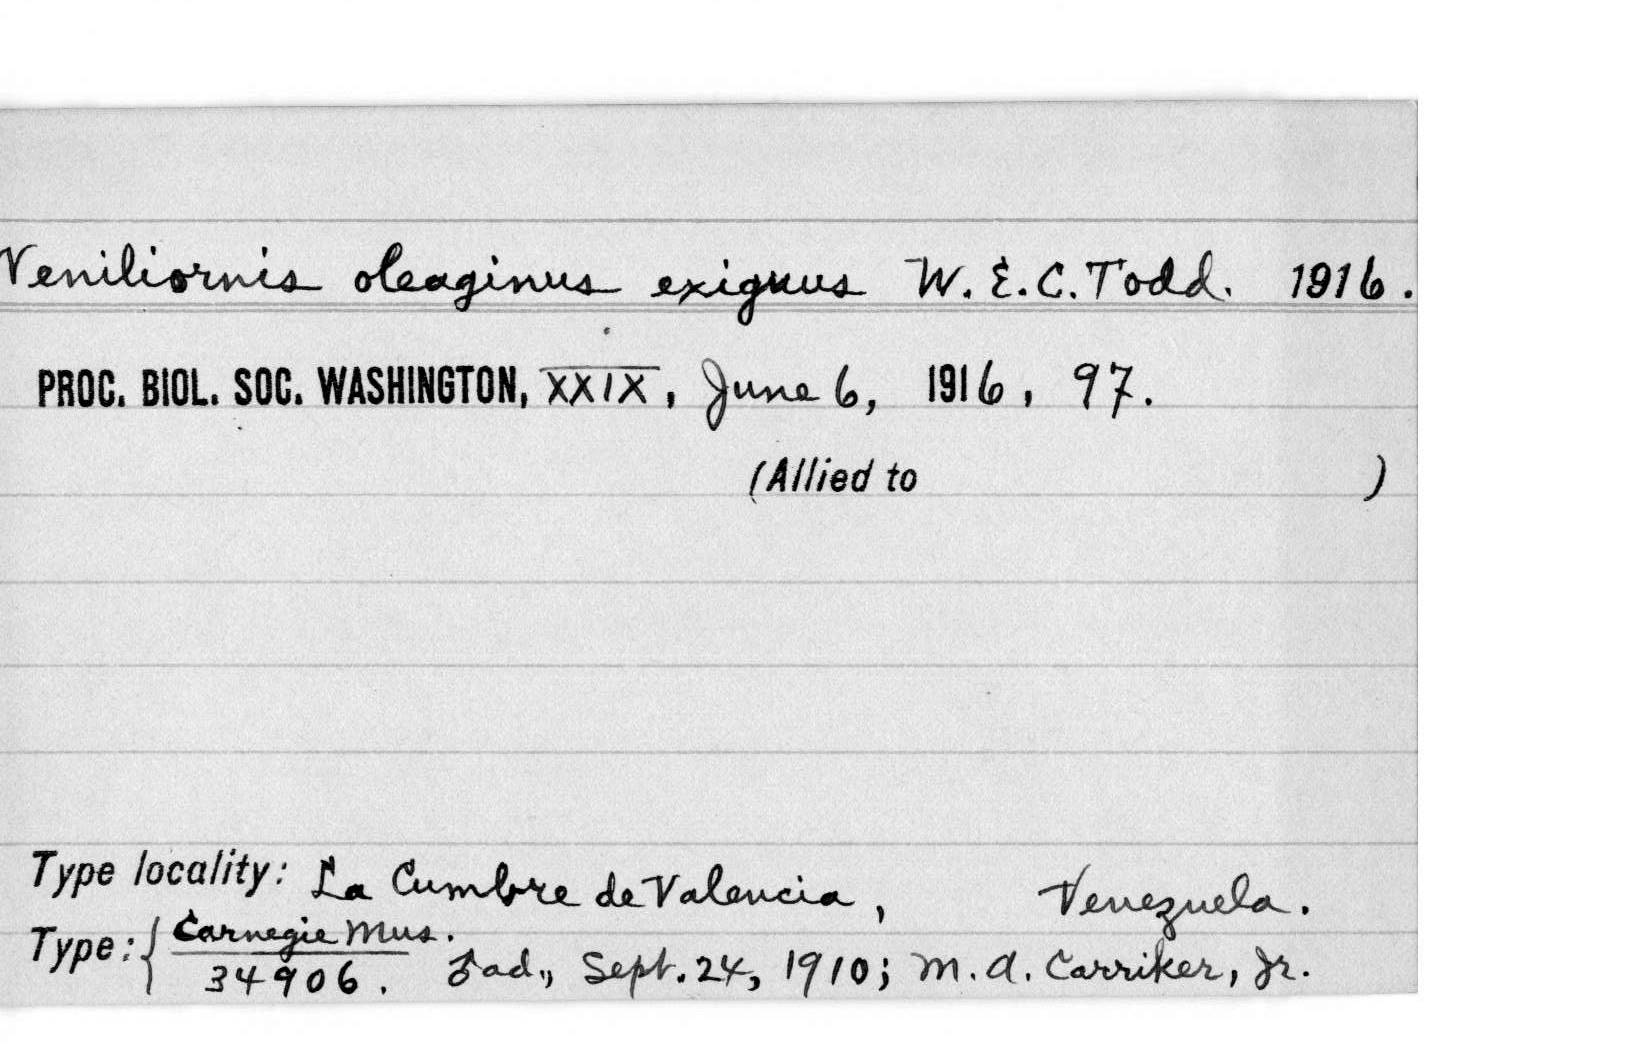 Veniliornis oleaginus exiguus W. E. C. Todd. 1916.
PROC. BIOL. SOC. WASHINGTON, XXIX, June 6, 1916, 97.
(Allied to )
Type locality: La Cumbre de Valencia, Venezuela.
Type: { Carnegie Mus.
34906. ♂ad., Sept. 24, 1910; M. A. Carriker, Jr.